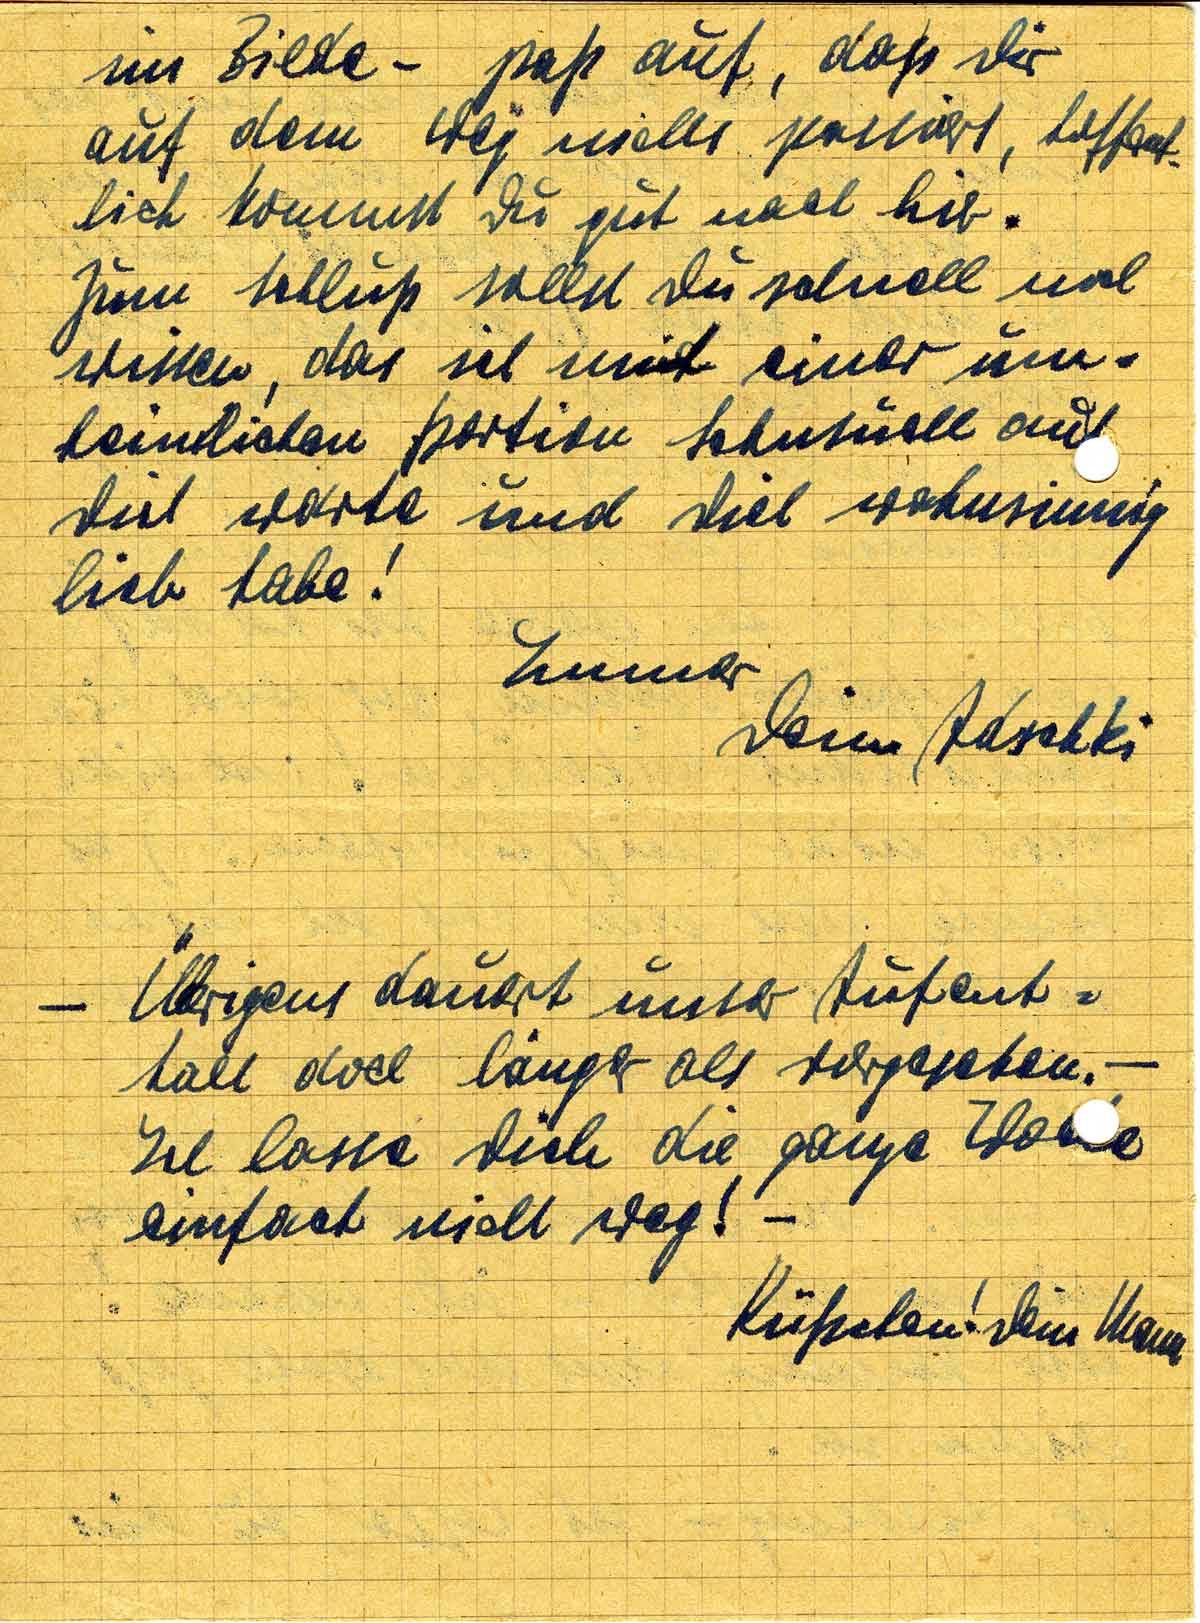 im Bilde - paß auf, daß Dir
auf dem Weg nichts passiert, hoffent-
lich kommst Du gut nach hier.
Zum Schluß sollst Du schnell noch
wissen, das ich mit einer un-
heimlichen Portion Sehnsucht auf
Dich warte und Dich wahnsinnig
lieb habe!
Immer
Dein Häschki
- Übrigens dauert unser Aufent-
halt doch länger als vorgesehen. -
Ich lasse Dich die ganze Woche
einfach nicht weg! -
Küßchen! Dein Mann